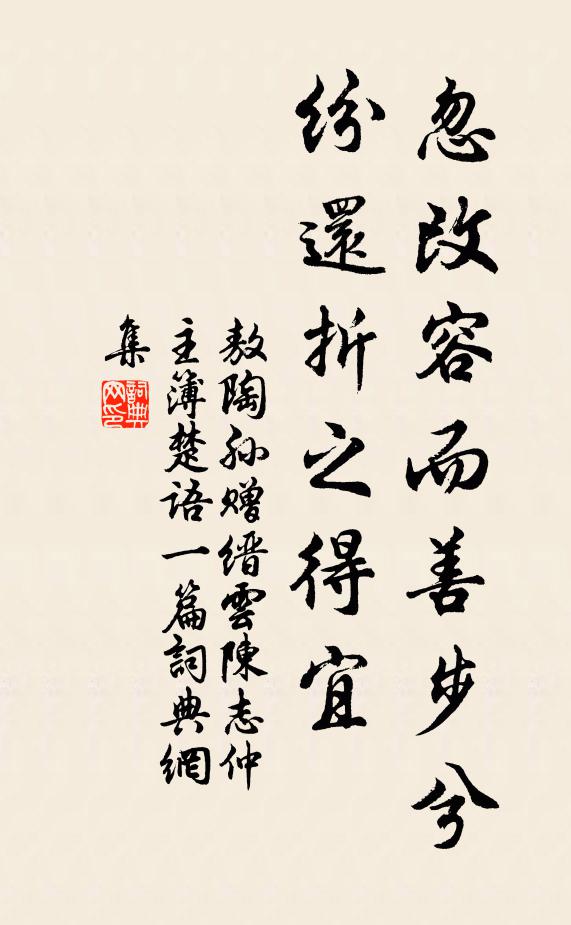 忽改容而善步兮
紛還折之得宜
敖陶孫贈縉雲陳志仲
主簿楚語一篇詞典網
集
詞典
网印